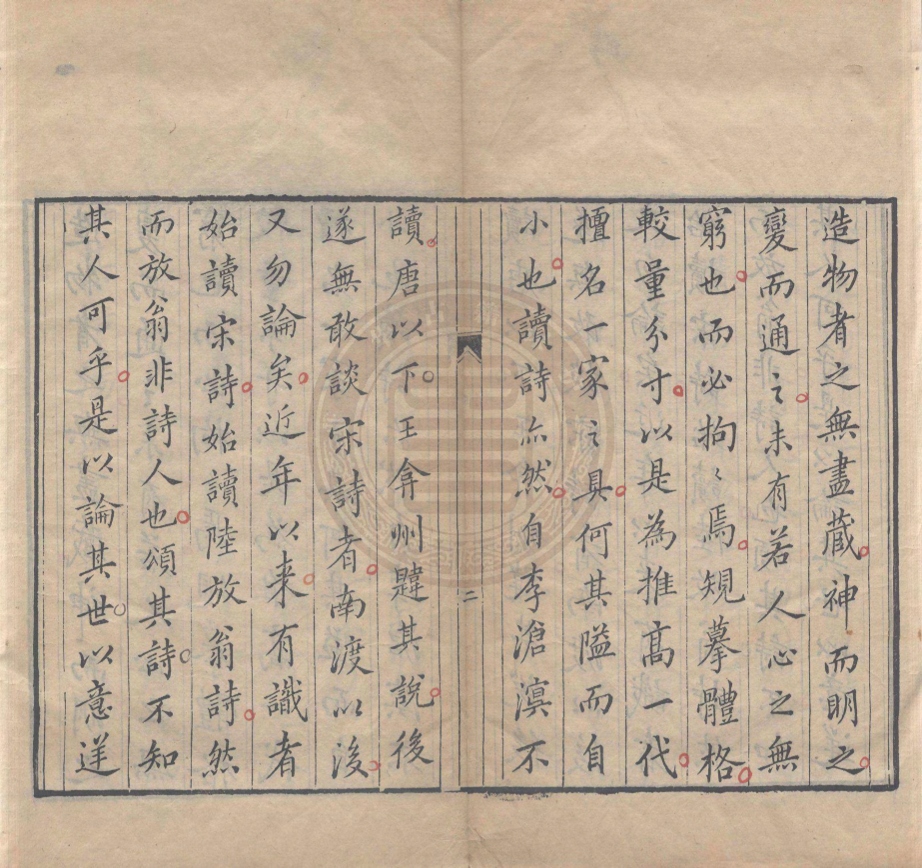 造物者之無盡藏神而明之
變而通之未有若人心之無
窮也而必拘〻焉規摹體格
較量分寸以是為推高一代
擅名一家之具何其隘而自
小也讀詩亦然自李滄溟不
二
讀唐以下王弇州韙其說後
遂無敢談宋詩者南渡以後
又勿論矣近年以来有識者
始讀宋詩始讀陸放翁詩然
而放翁非詩人也頌其詩不知
其人可乎是以論其世以意逆